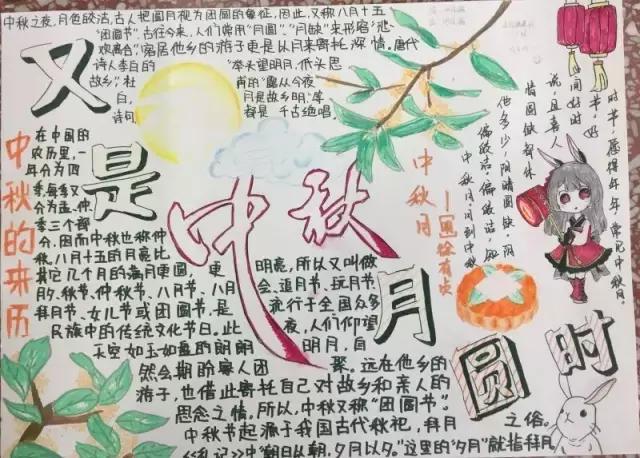 中秋之夜,月色皎洁,古人把圆月视为团圆的象征,因此,又称八月十五
“团圆节”。古往今来,人们常用“月圆”、“月缺”来形容“悲
欢离合”,客居他乡的游子更是以月来寄托深情。唐代
诗人李白的“举头望明月,低头思
故乡”,杜甫的“露从今夜
白,月是故乡明”等
诗句都是千古绝唱
又是中秋月圆时
中秋的来历
在中国的
农历里,一
年分为四
季,每季又
分为孟、仲、
季三个部
分,因而中秋也称仲
秋。八月十五的月亮比
其它几个月的满月更圆,更明亮,所以又叫做
月夕、秋节、仲秋节、八月节、八月会、追月节、玩月节、
拜月节、女儿节或团圆节,是流行于全国众多
民族中的传统文化节日。此夜,人们仰望
天空如玉如盘的朗朗明月,自
然会期盼家人团聚。远在他乡的
游子,也借此寄托自己对故乡和亲人的
思念之情。所以,中秋又称“团圆节”。
中秋节起源于我国古代秋祀,拜月之俗。
《礼记》中“朝日以朝,夕月以夕。”这里的“夕月”就指拜月
中秋月
徐有贞
中秋月。月到中秋
偏皎洁。偏皎洁,知
他多少,阴晴圆缺。阴
晴圆缺都休
说,且喜人
间好时
节。好
时节,愿得年年,常见中秋月。